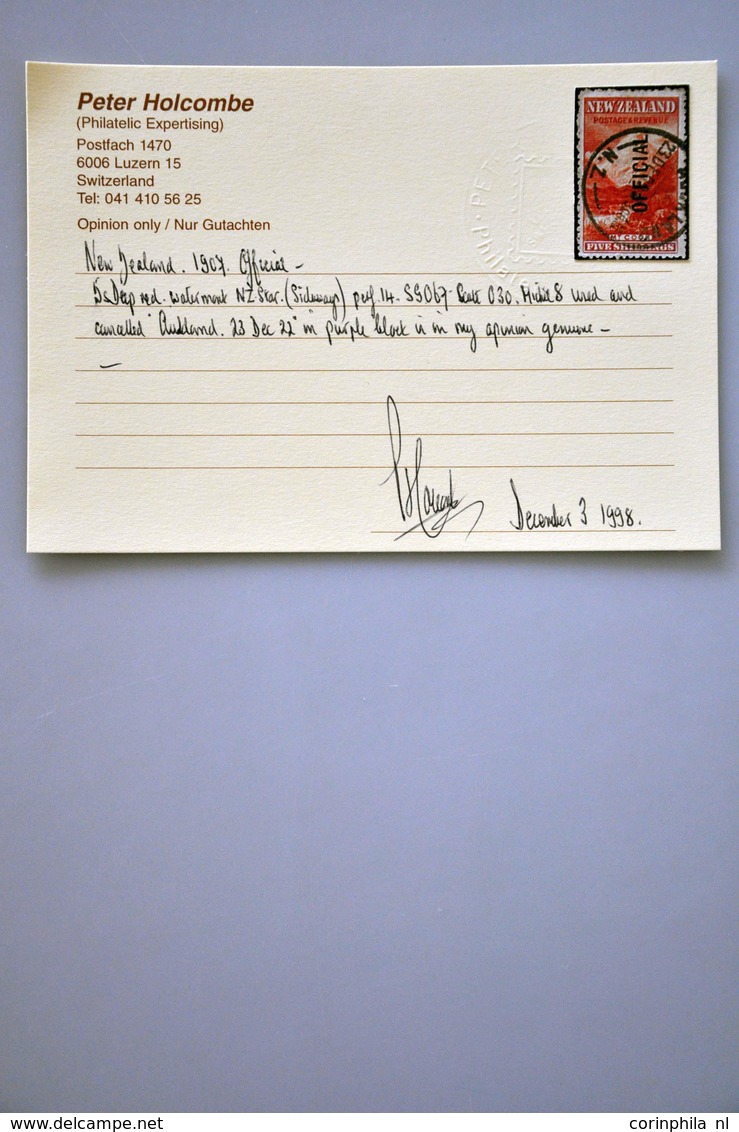 Peter Holcombe
(Philatelic Expertising)
Postfach 1470
6006 Luzern 15
Switzerland
Tel: 041 410 56 25
Opinion only / Nur Gutachten
NEW ZEALAND
POSTAGE & REVENUE
OFFICIAL
N.Z
MT COOK
FIVE SHILLINGS
New Zealand. 1907. Official -
5s Deep red. watermark NZ Star. (Sideways) perf. 14. SG O67 - Scott O30. Michel 8 used and
cancelled "Auckland. 23 Dec 22" in purple black is in my opinion genuine -
-
December 3 1998.
delcampe.net
corinphila nl